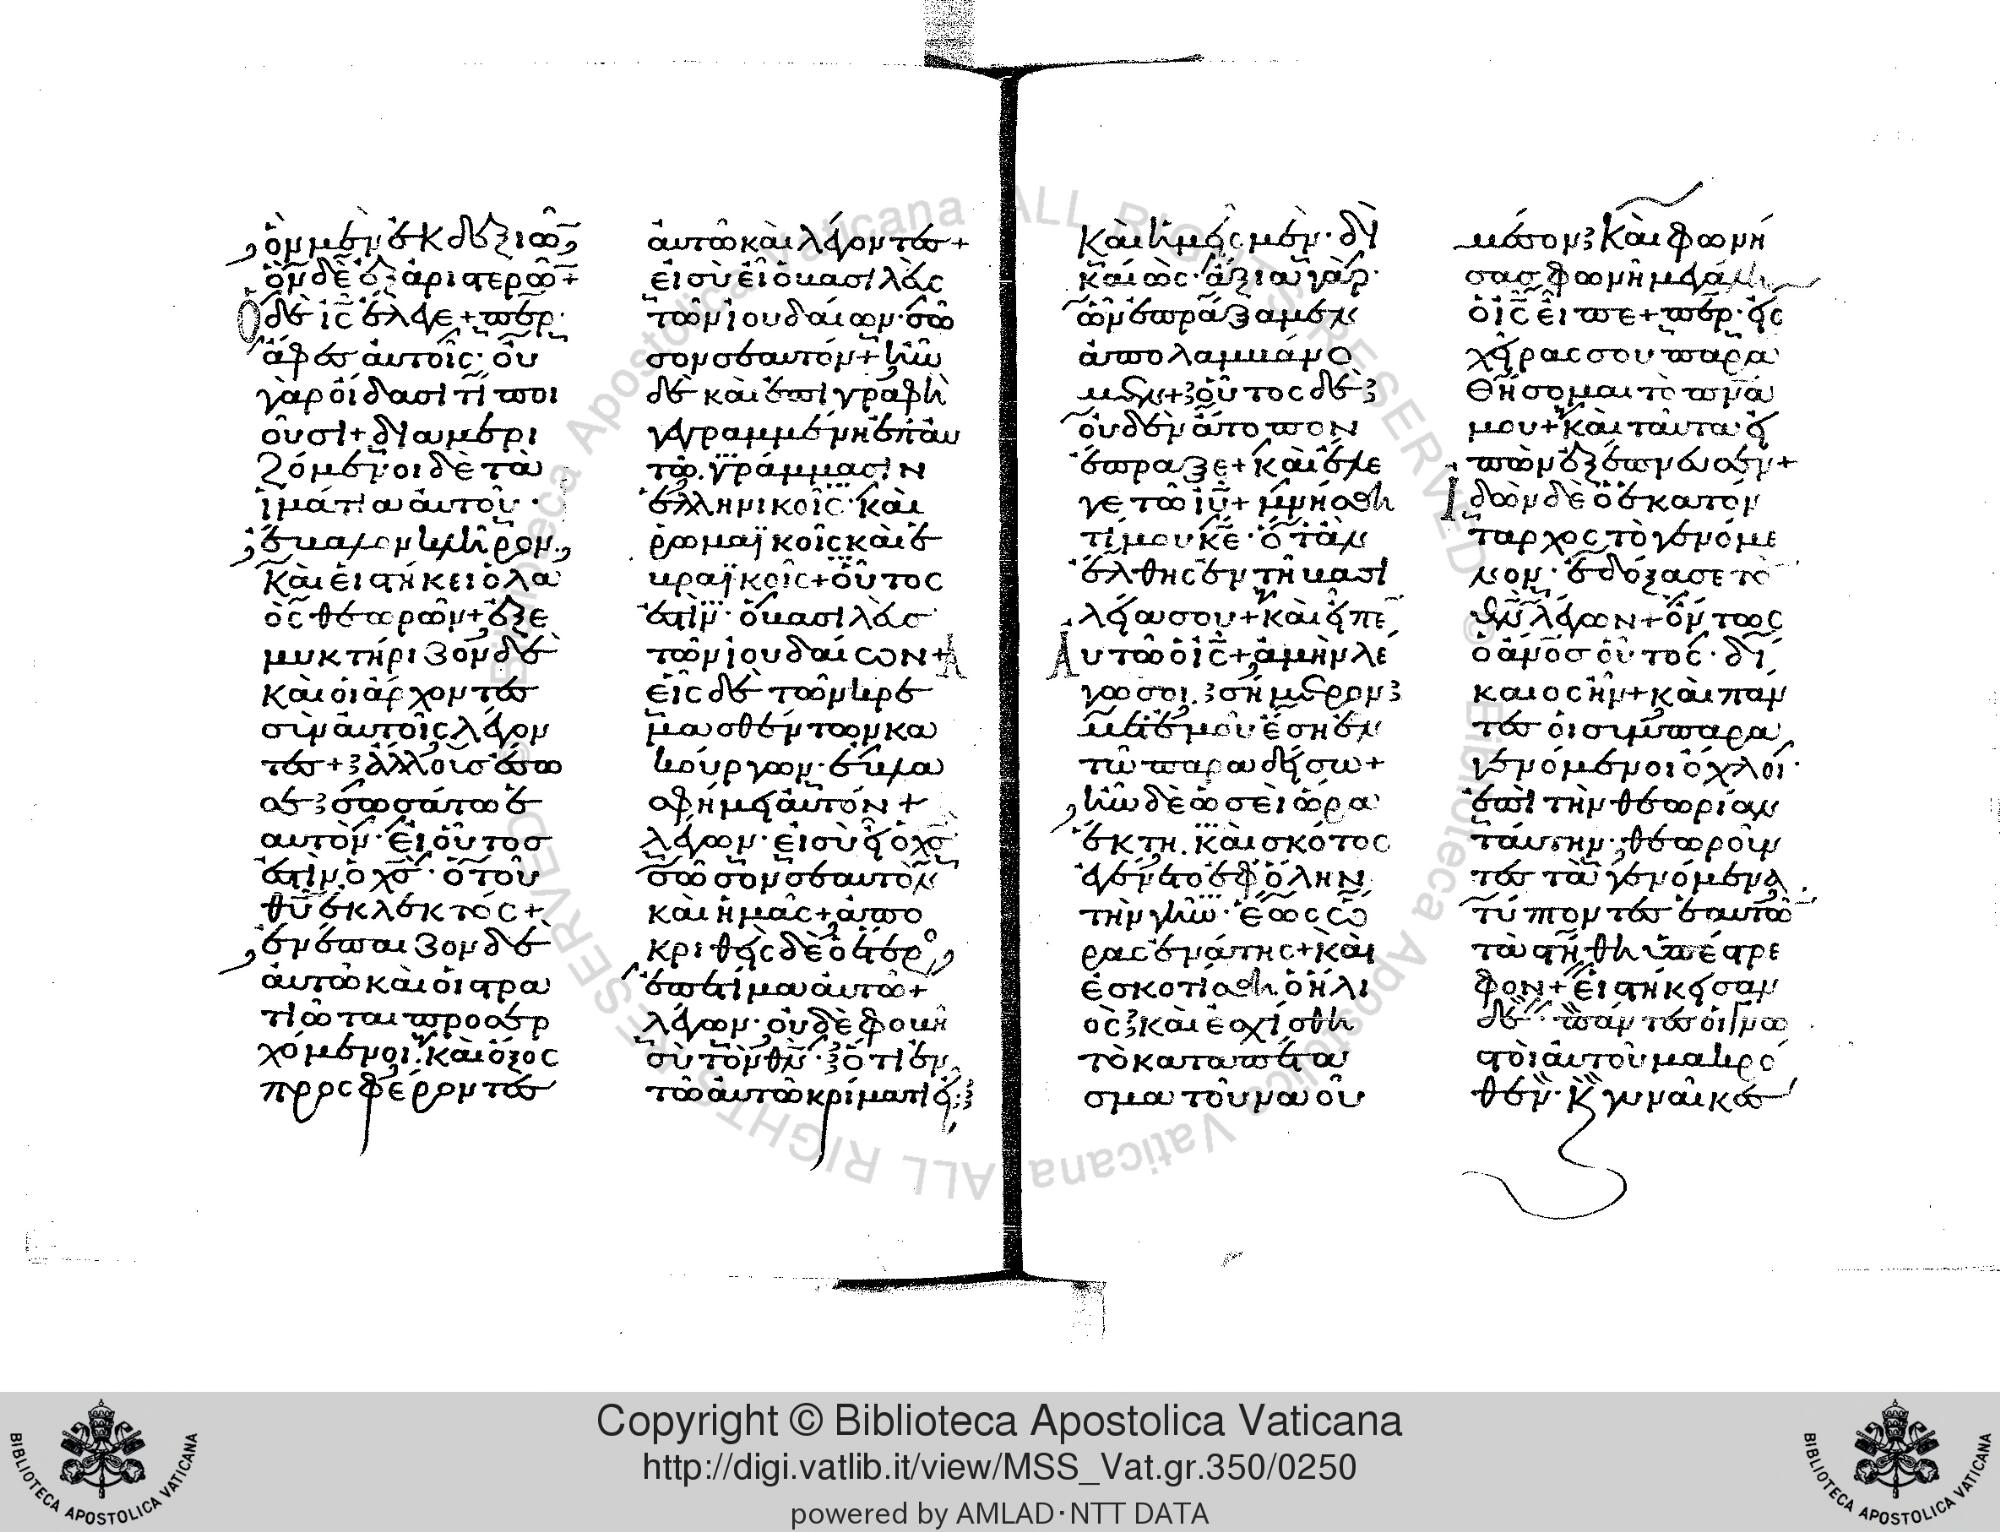 ὃν μὲν ἐκ δεξιῶ̅
ὃν δὲ ἐξ ἀριστερῶ̅+
Ὁ δὲ ι̅ς̅ ἔλεγε+ πε̅ρ·
ἄφες αὐτοῖς· οὐ
γὰρ οἴδασι τί ποι
οῦσι+ διαμερι
ζόμενοι δὲ τὰ
ἱμάτια αὐτοῦ·
ἔβαλον κλῆρον·
Καὶ εἱστήκει ὁ λα
ὸς θεωρῶν+ ἐξε
μυκτήριζον δὲ
καὶ οἱ ἄρχοντες
σὺν αὐτοῖς λέγον
τες+ ἄλλους ἔσω
σε σωσάτω ἑ
αυτόν· εἰ οὗτος
ἐστὶν ὁ χ̅ς̅· ὁ τοῦ
θ̅υ̅ ἐκλεκτός+
ἐνέπαιζον δὲ
αὐτῶ καὶ οἱ στρα
τιῶται προσερ
χόμενοι· καὶ ὄξος
προσφέροντες
αὐτῶ καὶ λέγοντες+
εἰ σὺ εἶ ὁ βασιλεὺς
τῶν ἰουδαίων· σῶ
σον σεαυτόν+ ἦν
δὲ καὶ ἐπιγραφὴ
γεγραμμένη ἐπ' αυ
τῶ· γράμμασιν
ἑλληνικοῖς· καὶ
ῥωμαϊκοῖς καὶ ἑ
βραϊκοῖς+ οὗτος
ἐστὶν· ὁ βασιλεὺς
τῶν ἰουδαίων+
εἷς δὲ τῶν κρε
μασθέντων κα
κούργων· ἐβλα
σφήμει αὐτὸν+
λέγων· εἰ σὺ εἶ ὁ χ̅ς̅
σῶσον σεαυτὸν
καὶ ἡμᾶς+ ἀπο
κριθεὶς δὲ ὁ ἕτερο
ἐπετίμα αὐτῶ+
λέγων· οὐδὲ φοβῆ
σὺ τὸν θ̅ν̅· ὅτι ἐν
τῶ αὐτῶ κρίματι εἶ·
Καὶ ἡμεῖς μὲν· δι
καίως· ἄξια γὰρ·
ὧν ἐπράξαμεν
ἀπολαμβάνο
μεν+ οὗτος δὲ
οὐδὲν ἄτοπον
ἔπραξε+ καὶ ἔλε
γε τῶ ι̅υ̅+ μνήσθη
τί μου κ̅ε̅· ὅταν
ἔλθης ἐν τῆ βασι
λεία σου+ καὶ εἶπε
Αὐτῶ ὁ ι̅ς̅+ ἀμὴν λέ
γω σοι· σήμερον
μετ' ἐμοῦ ἔση ἐν
τῶ παραδείσω+
ἦν δὲ ὡσεὶ ὥρα
ἕκτη· καὶ σκότος
ἐγένετο ἐφ' ὅλην
τὴν γῆν· ἕως ὥ
ρας ἐνάτης+ καὶ
ἐσκοτίσθη ὁ ἥλι
ος καὶ ἐσχίσθη
τὸ καταπέτα
σμα τοῦ ναοῦ
μέσον· Καὶ φωνή
σας φωνῆ μεγάλη
ὁ ι̅ς̅ εἶπε+ πε̅ρ· εἰς
χεῖρας σου παρα
θήσομαι τὸ πνα̅
μου+ καὶ ταῦτα εἰ
πὼν ἐξέπνευσεν+
Ἰδὼν δὲ ὁ ἑκατόν
ταρχος τὸ γενόμε
νον· ἐδόξασε τὸν
θ̅ν̅ λέγων+ ὄντως
ὁ α̅νο̅ς οὗτος· δί
καιος ἦν+ καὶ πάν
τες οἱ συμπαρα
γενόμενοι ὄχλοι·
ἐπὶ τὴν θεωρίαν
ταύτην· θεωροῦν
τες τὰ γενόμενα
τύπτοντες ἑαυτῶ̅
τὰ στήθη ὑπέστρε
φον+ εἱστήκεισαν
δὲ πάντες οἱ γνω
στοὶ αὐτοῦ μακρό
θεν· κ̀ γυναῖκες
Copyright © Biblioteca Apostolica Vaticana
http://digi.vatlib.it/view/MSS_Vat.gr.350/0250
powered by AMLAD·NTT DATA